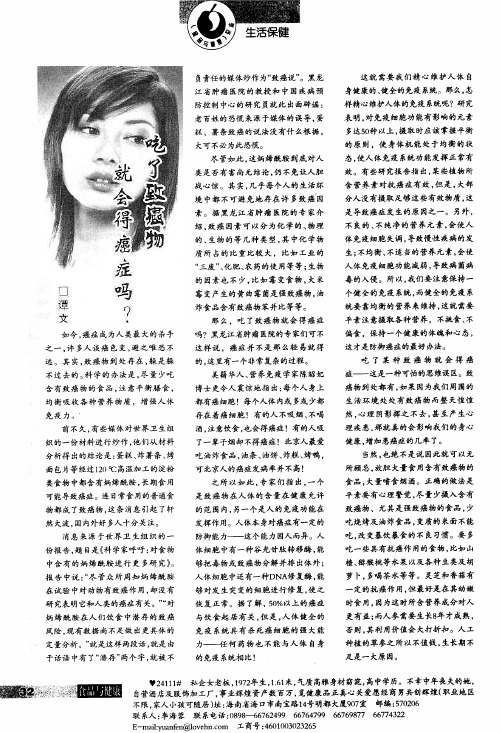 生活保健
吃了致癌物
就会得癌症吗?
□谭文
如今,癌症成为人类最大的杀手
之一,许多人谈癌色变,避之唯恐不
远。其实,致癌物到处存在,躲是躲
不过去的。科学的办法是,尽量少吃
含有致癌物的食品,注意平衡膳食,
均衡吸收各种营养物质，增强人体
免疫力。
前不久,有些媒体对世界卫生组
织的一份材料进行炒作,他们从材料
分析得出的结论是:蛋糕、炸薯条、烤
面包片等经过120℃高温加工的淀粉
类食物中都含有炳烯酰胺,长期食用
可能导致癌症。连日常食用的普通食
物都成了致癌物,这条消息引起了轩
然大波,国内外好多人十分关注。
消息来源于世界卫生组织的一
份报告,题目是《科学家呼吁:对食物
中含有的炳烯酰胺进行更多研究》。
报告中说:“尽管众所周知炳烯酰胺
在试验中对动物有致癌作用,却没有
研究表明它和人类的癌症有关。”“对
炳烯酰胺在人们饮食中潜存的致癌
风险,现有数据尚不足做出更具体的
定量分析。”就是这样两段话,就是由
于话语中有了“潜存”两个字,就被不
负责任的媒体炒作为“致癌说”。黑龙
江省肿瘤医院的教授和中国疾病预
防控制中心的研究员就此出面辟谣:
老百姓的恐慌来源于媒体的误导,蛋
糕、薯条致癌的说法没有什么根据,
大可不必为此恐慌。
尽管如此,这炳烯酰胺到底对人
类是否有害尚无结论,仍不免让人胆
战心惊。其实,几乎每个人的生活环
境中都不可避免地存在许多致癌因
素。据黑龙江省肿瘤医院的专家介
绍,致癌因素可以分为化学的、物理
的、生物的等几种类型,其中化学物
质所占的比重比较大，比如工业的
“三废”、化肥、农药的使用等等;生物
的因素也不少,比如霉变食物,大米
霉变产生的黄曲霉菌是强致癌物,油
炸食品含有致癌物苯并比等等。
那么，吃了致癌物就会得癌症
吗?黑龙江省肿瘤医院的专家们可不
这样说，癌症并不是那么轻易就得
的,这里有一个非常复杂的过程。
美籍华人、营养免疫学家陈昭妃
博士更令人震惊地指出:每个人身上
都有癌细胞!每个人体内或多或少都
存在着癌细胞！有的人不吸烟、不喝
酒,注意饮食,也会得癌症!有的人吸
了一辈子烟却不得癌症!北京人最爱
吃油炸食品,油条、油饼、炸糕、烤鸭,
可北京人的癌症发病率并不高!
之所以如此,专家们指出,一个
是致癌物在人体的含量在健康允许
的范围内,另一个是人的免疫功能在
发挥作用。人体本身对癌症有一定的
防御能力——这个能力因人而异。人
体细胞中有一种谷光甘肽转移酶,能
够把毒物或致癌物分解并排出体外;
人体细胞中还有一种DNA修复酶,能
够对发生突变的细胞进行修复,使之
恢复正常。据了解,50%以上的癌症
与饮食起居有关,但是,人体健全的
免疫系统具有杀死癌细胞的强大能
力——任何药物也不能与人体自身
的免疫系统相比!
这就需要我们精心维护人体自
身健康的、健全的免疫系统。那么,怎
样精心维护人体的免疫系统呢?研究
表明,对免疫细胞功能有影响的元素
多达50种以上,摄取时应该掌握平衡
的原则，使身体机能处于均衡的状
态,使人体免疫系统功能发挥正常有
效。有些研究报告中指出,某些植物所
含营养素对抗癌症有效,但是,大部
分人没有摄取足够这些有效物质,这
是导致癌症发生的原因之一。另外,
不良的、不纯净的营养元素,会使人
体免疫细胞失调,导致慢性疾病的发
生;不均衡、不适当的营养元素,会使
人体免疫细胞功能减弱,导致病菌病
毒的入侵。所以,我们要注意保持一
个健全的免疫系统,而健全的免疫系
统要靠均衡的营养来维持,这就需要
平素注意摄取各种营养，不挑食、不
偏食，保持一个健康的体魄和心态，
这才是防御癌症的最好办法。
吃了某种致癌物就会得癌
症——这是一种可怕的思维误区。致
癌物到处都有,如果因为我们周围的
生活环境处处有致癌物而整天惶惶
然,心理阴影挥之不去,甚至产生心
理疾患,那就真的会影响我们的身心
健康,增加患癌症的几率了。
当然,也绝不是说因此就可以无
所顾忌,放胆大量食用含有致癌物的
食品,大量嗜食烟酒。正确的做法是
平素要有心理警觉,尽量少摄入含有
致癌物、尤其是强致癌物的食品,少
吃烧烤及油炸食品,变质的米面不能
吃,改变暴饮暴食的不良习惯。要多
吃一些具有抗癌作用的食物,比如山
楂、猕猴桃等水果以及各种豆类及胡
萝卜,多喝茶水等等。灵芝和香菇有
一定的抗癌作用,但最好是在其幼嫩
时食用,因为这时所含营养成分对人
更有益;而人参需要生长8年才成熟,
否则,其利用价值会大打折扣。人工
种植的罩参之所以不值钱,生长期不
足是一大原因。
32 食品与健康
♥24111# 私企女老板,1972年生,1.61米,气质高雅身材窈窕,高中学历。不幸中年丧夫的她,
自营酒店及服饰加工厂,事业辉煌资产数百万,觅健康品正真心关爱愿经商男共创辉煌(职业地区
不限,家人小孩可随居)址:海南省海口市南宝路14号明都大厦907室 邮编:570206
联系人:李海蓉 联系电话:0898—66762499 66764799 66769877 66774322
E-mail:yuanfen@lovehn.com 工商号:4601003023265